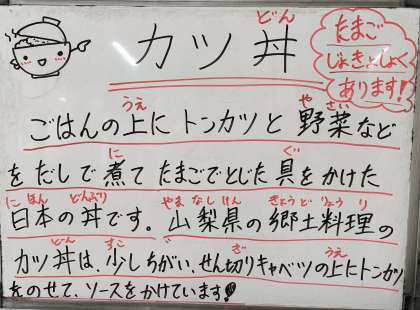 カツ丼
どん
たまご
じょきょしょく
あります!
ごはんの上にトンカツと野菜など
うえ
や さい
をだしで煮てたまごでとじた具をかけた
に
ぐ
日本の丼です。山梨県の郷土料理の
に ほん どんぶり やま なし けん きょう ど りょう り
カツ丼は、少しちがい、せん切りキャベツの上にトンカツ
どん すこ ぎ うえ
をのせて、ソースをかけています!